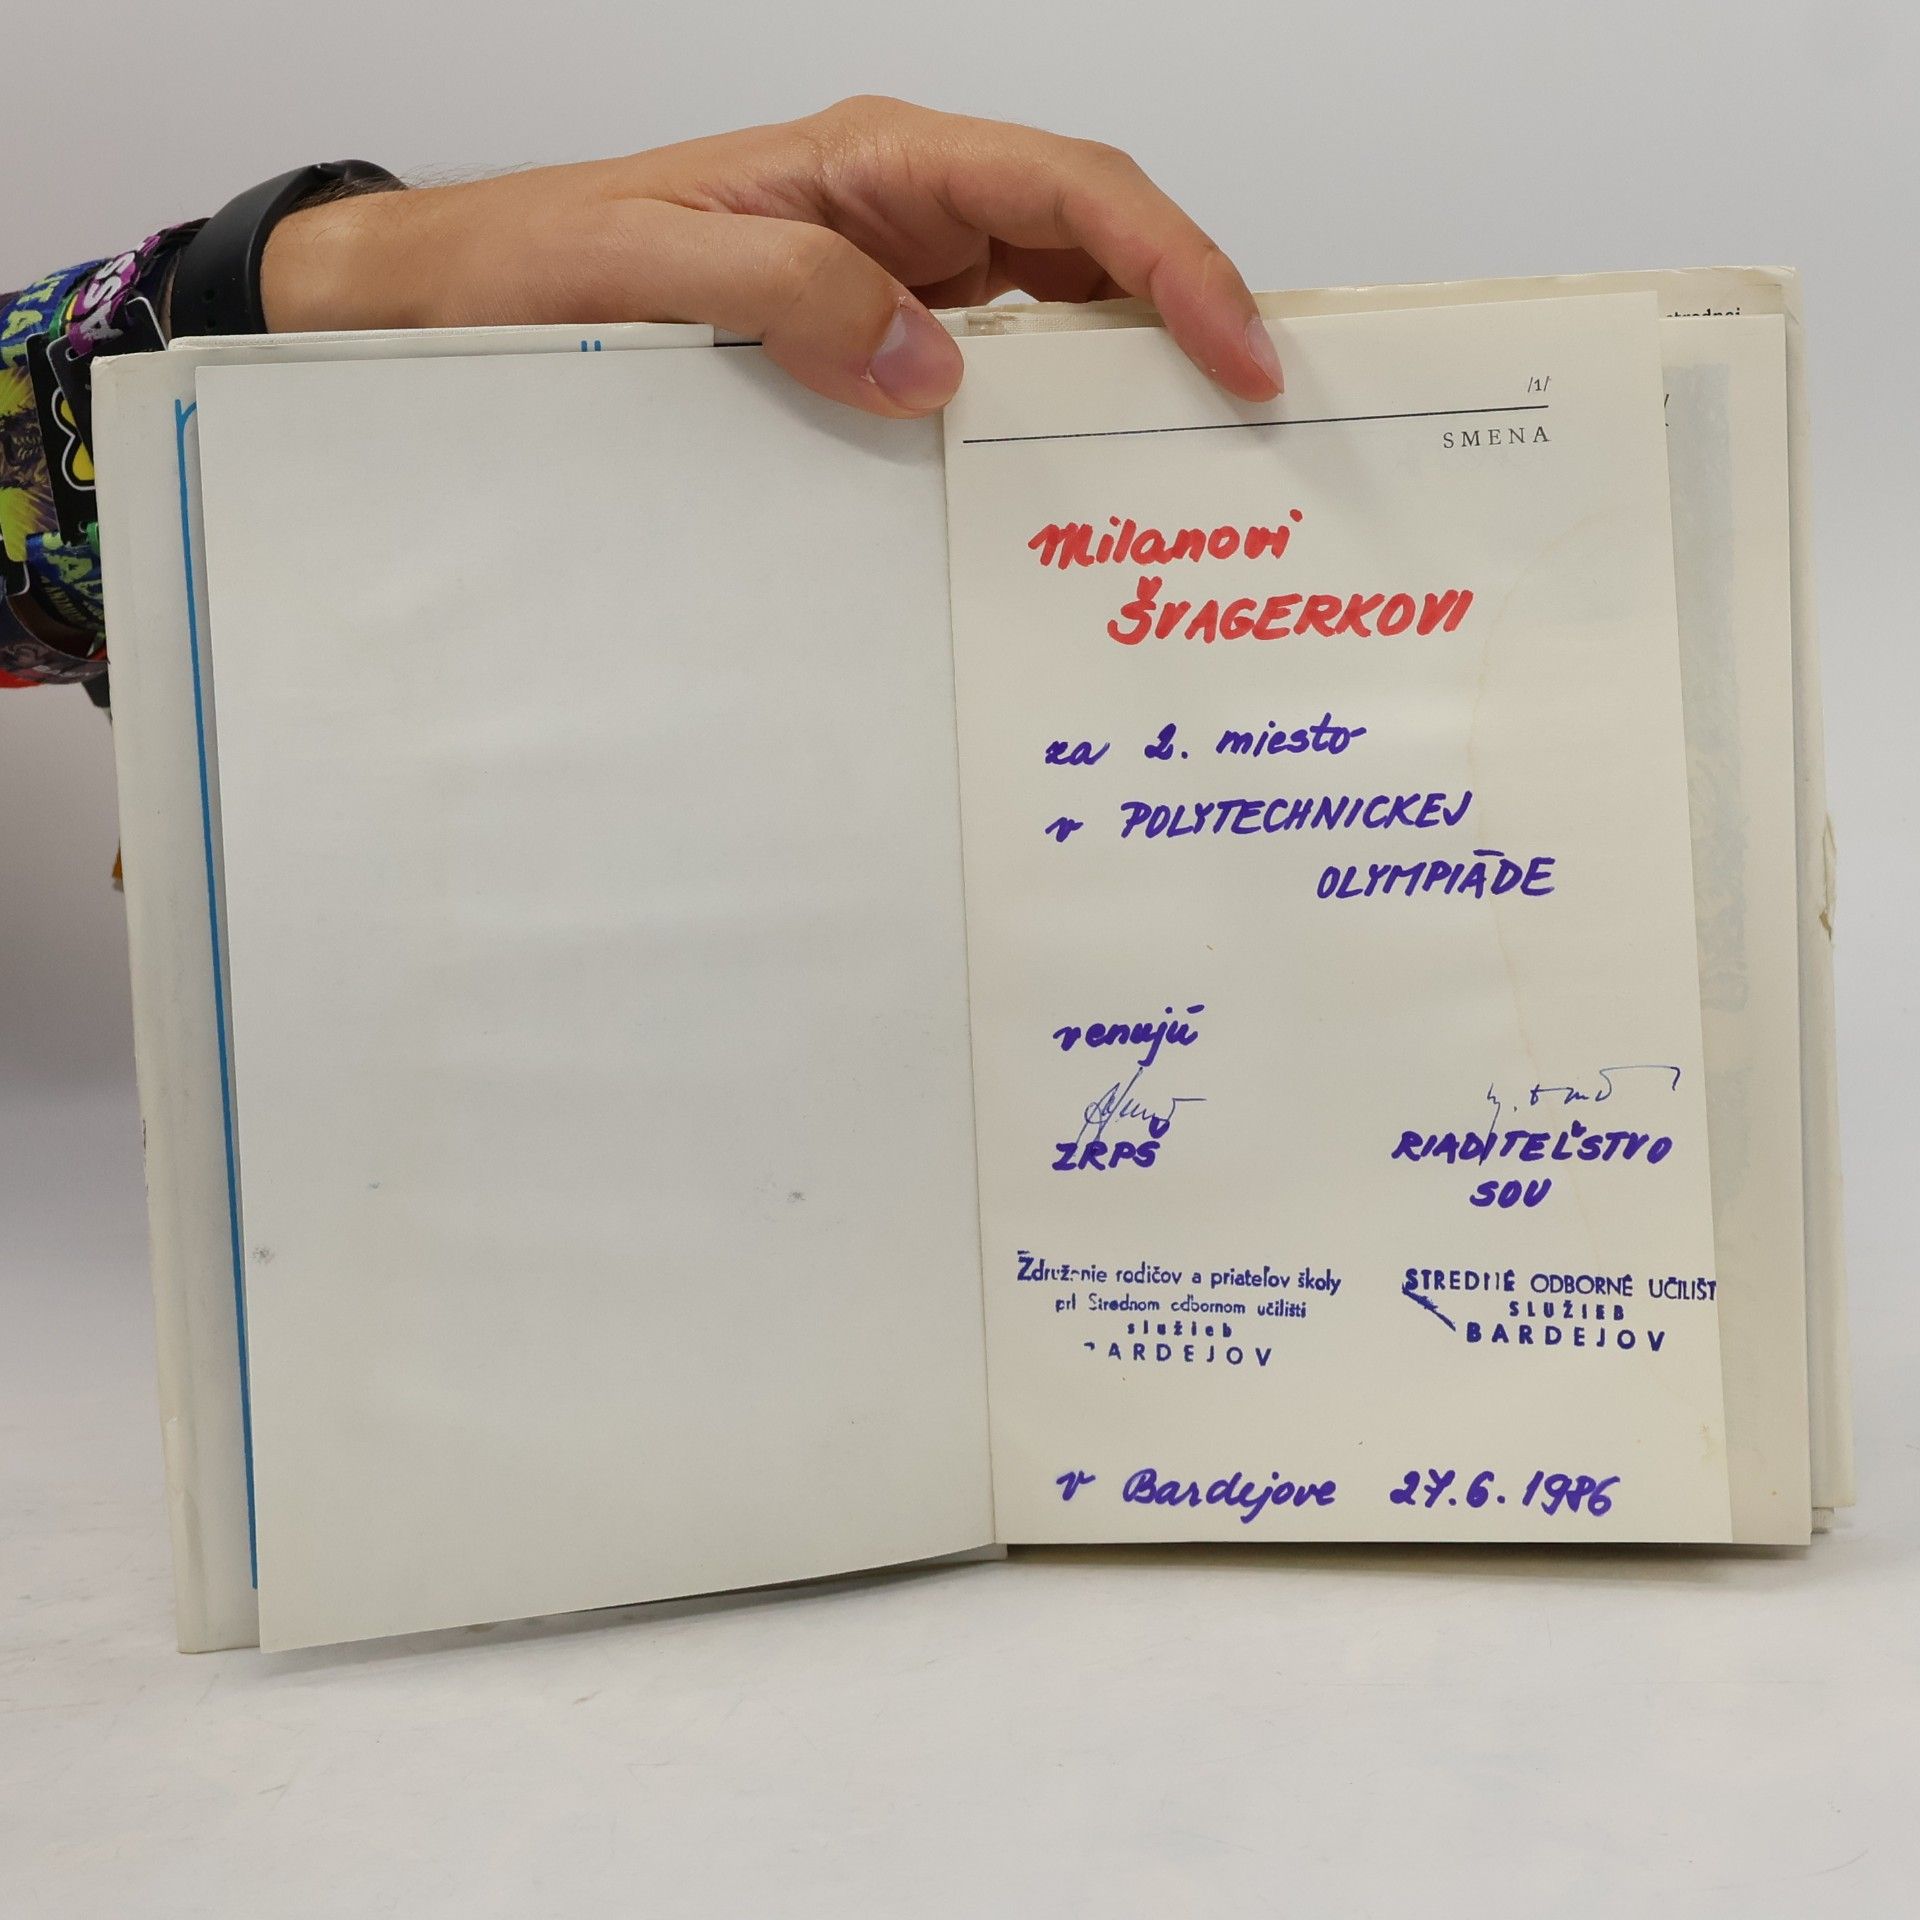 ASS
/1/
SMENA
Milanovi
ŠVAGERKOVI
za 2. miesto
v POLYTECHNICKEJ
OLYMPIÁDE
venujú
ZRPŠ
RIADITEĽSTVO
SOU
Združenie rodičov a priateľov školy
pri Strednom odbornom učilišti
služieb
BARDEJOV
STREDNÉ ODBORNÉ UČILIŠT
SLUŽIEB
BARDEJOV
v Bardejove 27.6.1986